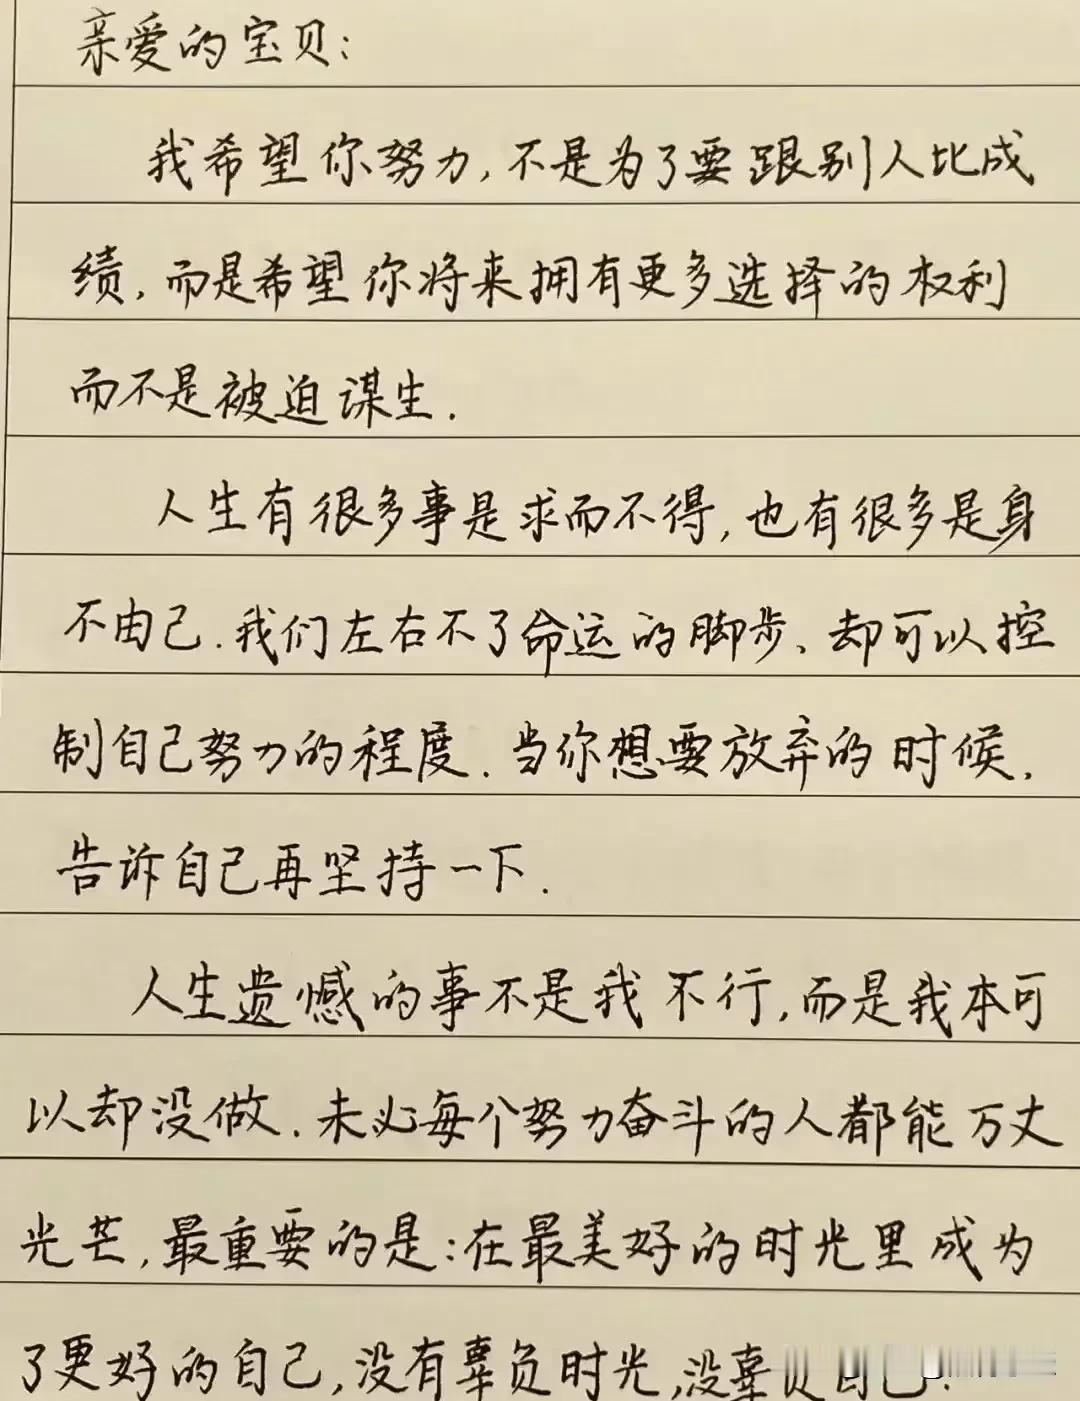 亲爱的宝贝:
我希望你努力,不是为了要跟别人比成
绩,而是希望你将来拥有更多选择的权利
而不是被迫谋生.
人生有很多事是求而不得,也有很多是身
不由己.我们左右不了命运的脚步、却可以控
制自己努力的程度.当你想要放弃的时候.
告诉自己再坚持一下.
人生遗憾的事不是我不行,而是我本可
以却没做.未必每个努力奋斗的人都能万丈
光芒,最重要的是:在最美好的时光里成为
了更好的自己,没有辜负时光,没辜负自己.